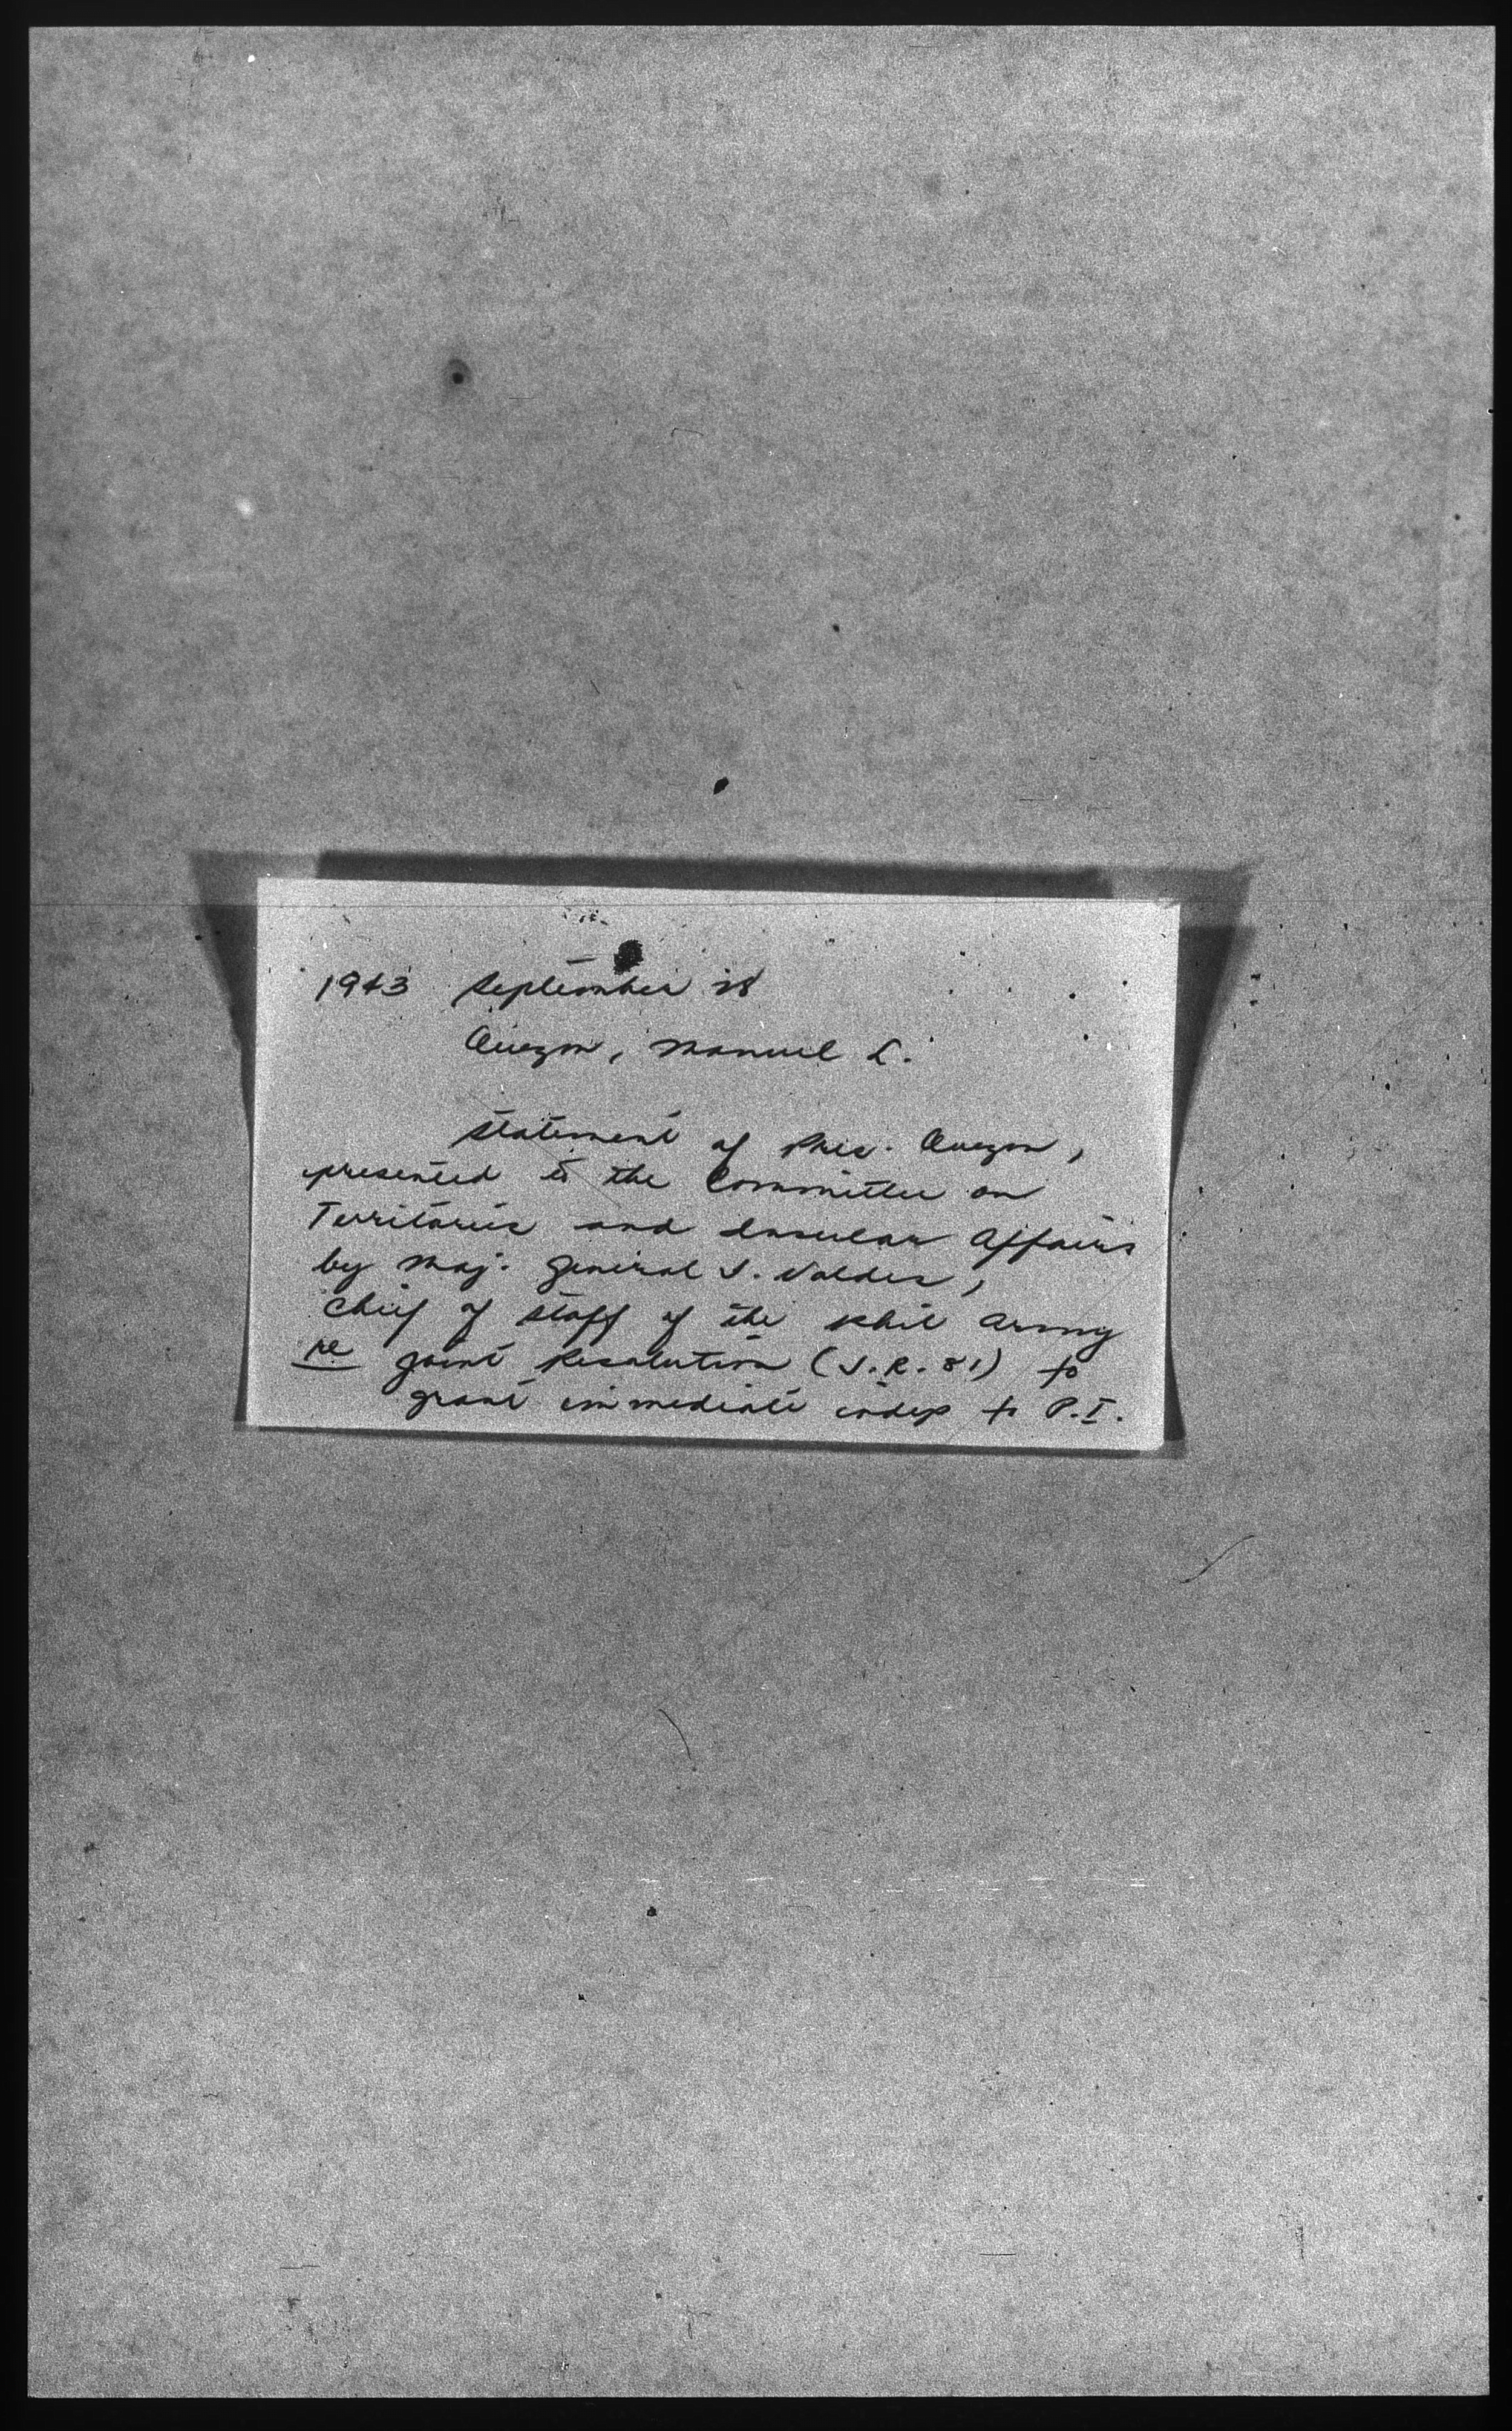 1943 September 28
Quezon, Manuel L.
Statement of Pres. Quezon,
presented to the Committee on
Territories and Insular Affairs
by Maj. General S. Valdes,
Chief of Staff of the Phil Army
re Joint Resolution (S.R. 81) to
grant immediate indep to P.I.